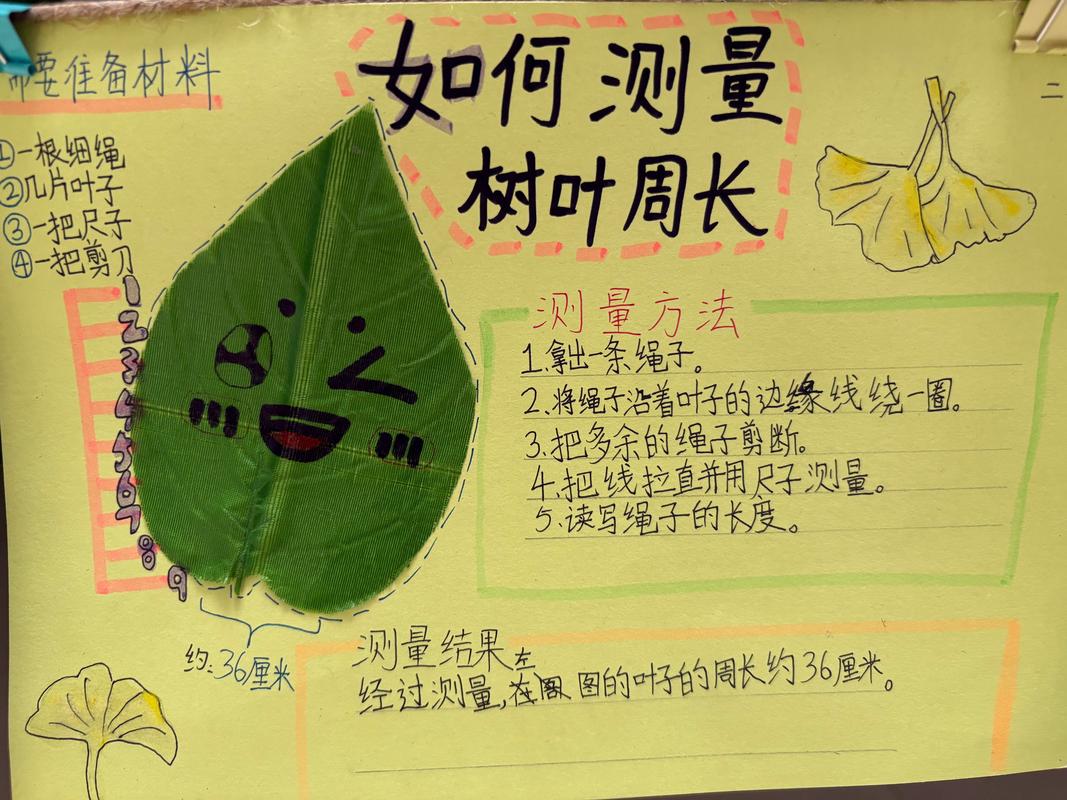 如何测量
树叶周长
需要准备材料
①一根细绳
②几片叶子
③一把尺子
④一把剪刀
1
2
3
4
5
6
7
8
9
约:36厘米
测量方法
1.拿出一条绳子。
2.将绳子沿着叶子的边缘线绕一圈。
3.把多余的绳子剪断。
4.把线拉直并用尺子测量。
5.读写绳子的长度。
测量结果
经过测量,左图的叶子的周长约36厘米。
二